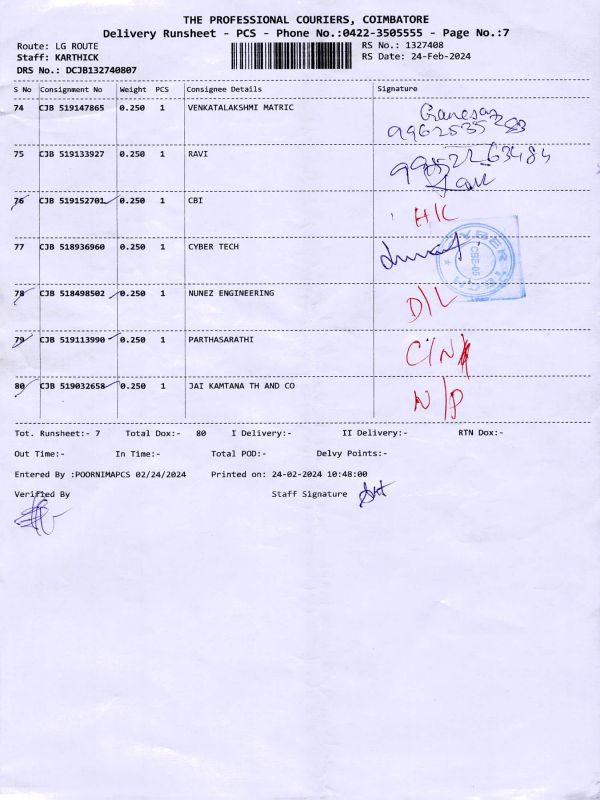 THE PROFESSIONAL COURIERS, COIMBATORE
Delivery Runsheet - PCS - Phone No.:0422-3505555 - Page No.:7
Route: LG ROUTE RS No.: 1327408
Staff: KARTHICK RS Date: 24-Feb-2024
DRS No.: DCJB132740807
S No Consignment No Weight PCS Consignee Details Signature
74 CJB 519147865 0.250 1 VENKATALAKSHMI MATRIC
75 CJB 519133927 0.250 1 RAVI
76 CJB 519152701 0.250 1 CBI
77 CJB 518936960 0.250 1 CYBER TECH
78 CJB 518498502 0.250 1 NUNEZ ENGINEERING D/L
79 CJB 519113990 0.250 1 PARTHASARATHI
80 CJB 519032658 0.250 1 JAI KAMTANA TH AND CO N/P
Tot. Runsheet:- 7 Total Dox:- 80 I Delivery:- II Delivery:- RTN Dox:-
Out Time:- In Time:- Total POD:- Delvy Points:-
Entered By :POORNIMAPCS 02/24/2024 Printed on: 24-02-2024 10:48:00
Verified By Staff Signature